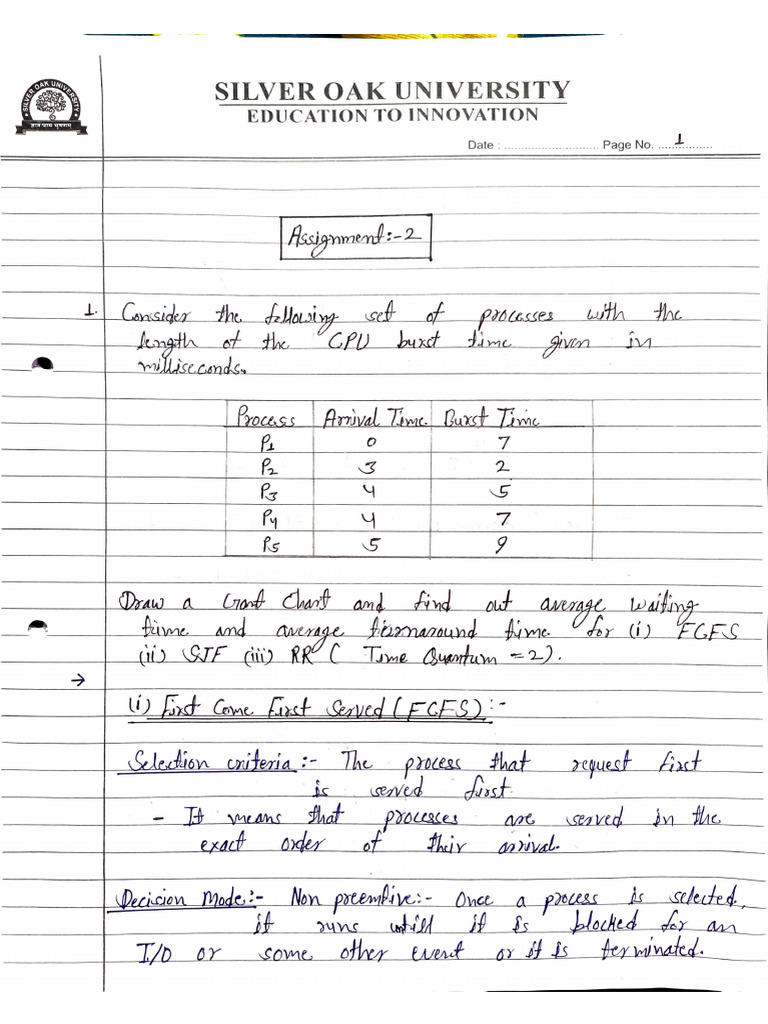 SILVER OAK UNIVERSITY
EDUCATION TO INNOVATION
SILVER OAK UNIVERSITY
Date : ............................ Page No. 1
Assignment:-2
1. Consider the following set of processes with the
length of the CPU burst time given in
milliseconds.
Process Arrival Time Burst Time
P1 0 7
P2 3 2
P3 4 5
P4 4 7
P5 5 9
Draw a Gantt Chart and find out average waiting
time and average turnaround time for (i) FCFS
(ii) SJF (iii) RR ( Time Quantum = 2).
→
(i) First Come First Served (FCFS):-
Selection criteria:- The process that request first
is served first.
- It means that processes are served in the
exact order of their arrival.
Decision Mode:- Non preemptive:- Once a process is selected,
it runs until it is blocked for an
I/O or some other event or it is terminated.